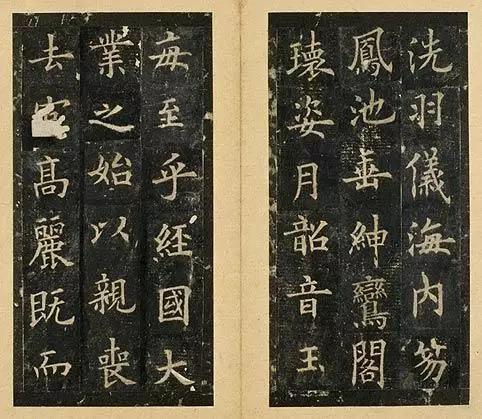 洗羽儀海内笏
鳳池垂紳鸞閣
瓌姿月韶音王
每至乎經國大
業之始以親喪
去髙麗既而